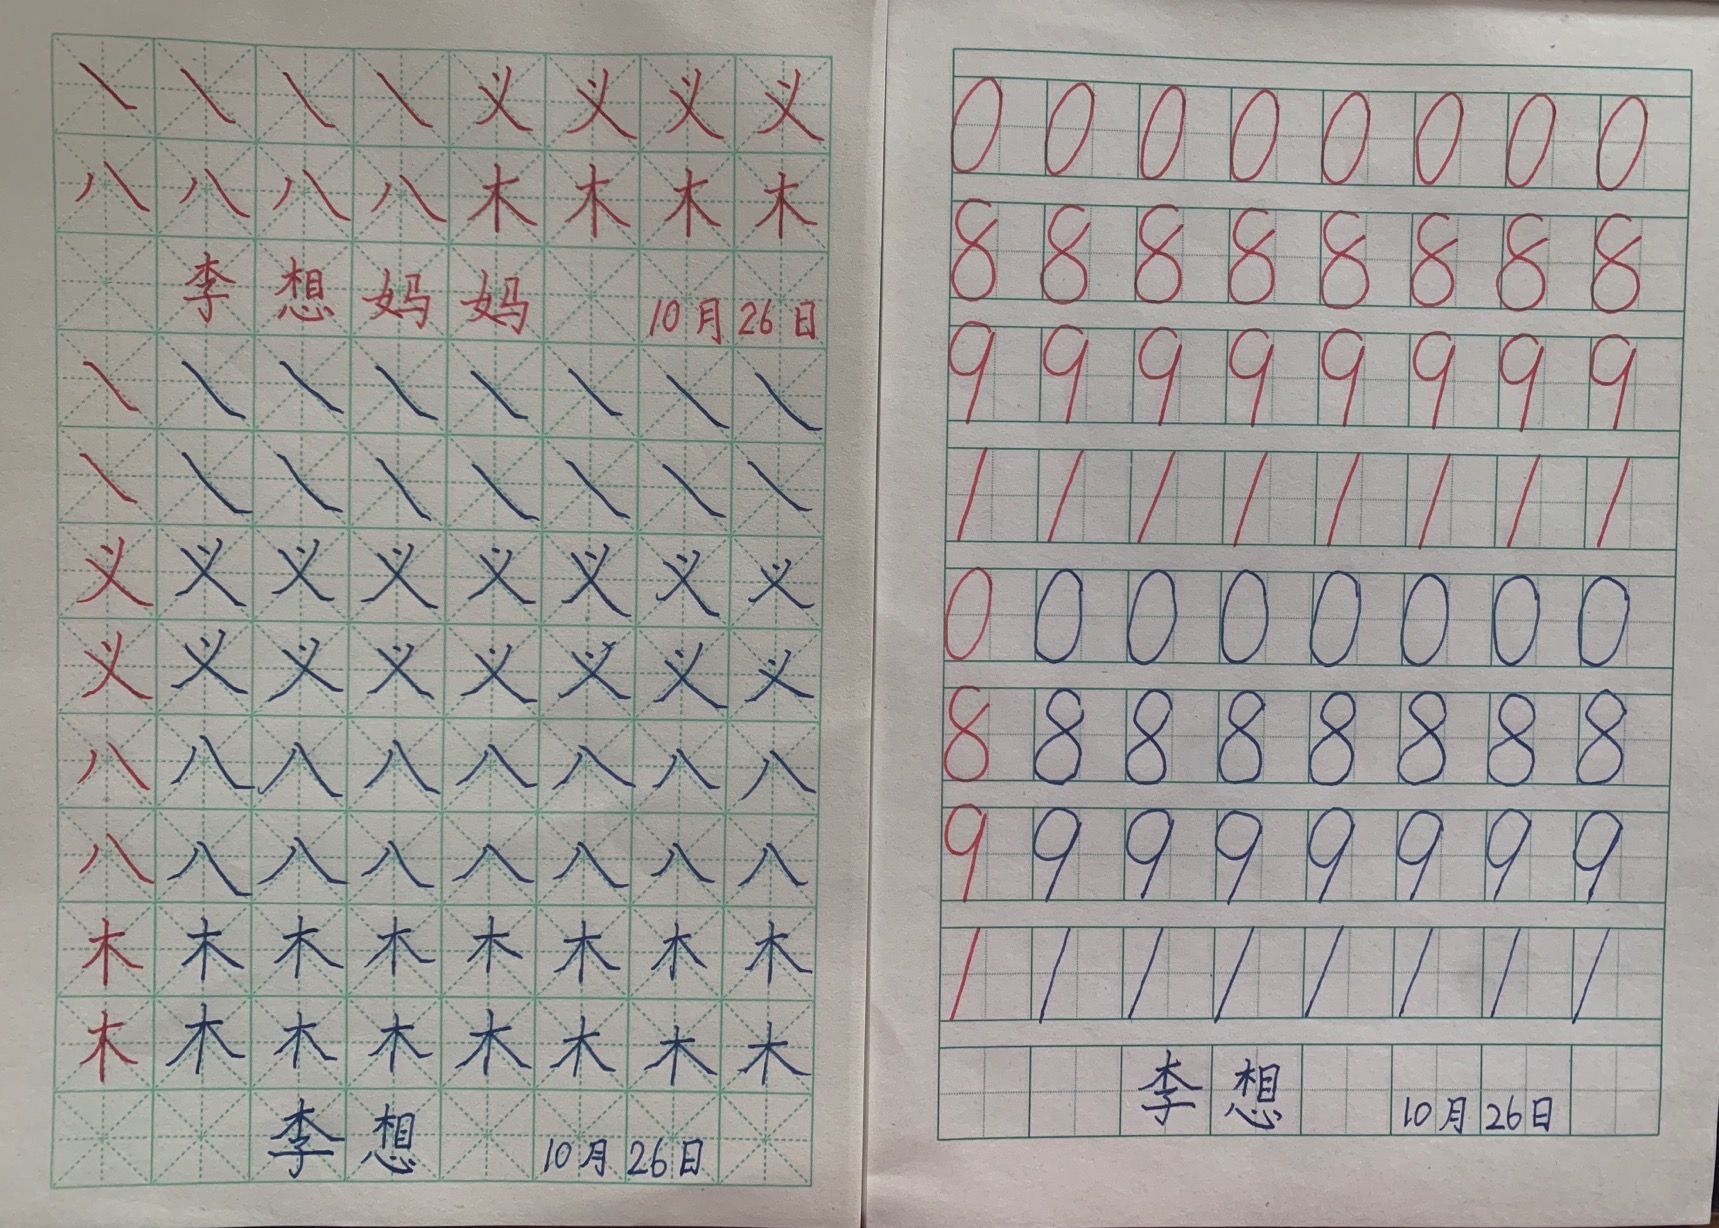 ㇏ ㇏ ㇏ ㇏ 义 义 义 义
八 八 八 八 木 木 木 木
李 想 妈 妈 10月26日
㇏ ㇏ ㇏ ㇏ ㇏ ㇏ ㇏ ㇏
㇏ ㇏ ㇏ ㇏ ㇏ ㇏ ㇏ ㇏
义 义 义 义 义 义 义 义
义 义 义 义 义 义 义 义
八 八 八 八 八 八 八 八
八 八 八 八 八 八 八 八
木 木 木 木 木 木 木 木
木 木 木 木 木 木 木 木
李 想 10月26日
0 0 0 0 0 0 0 0
8 8 8 8 8 8 8 8
9 9 9 9 9 9 9 9
1 1 1 1 1 1 1 1
0 0 0 0 0 0 0 0
8 8 8 8 8 8 8 8
9 9 9 9 9 9 9 9
1 1 1 1 1 1 1 1
李 想 10月26日